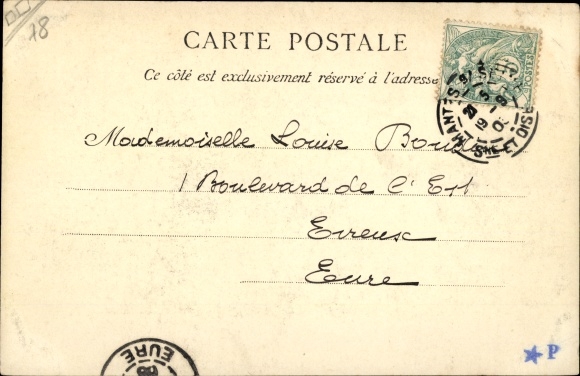 18
CARTE POSTALE
Ce côté est exclusivement réservé à l'adresse
Mademoiselle Louise
1 Boulevard de l'Est
Evreux
Eure
MANTES
SNE ET OISE
EURE
P